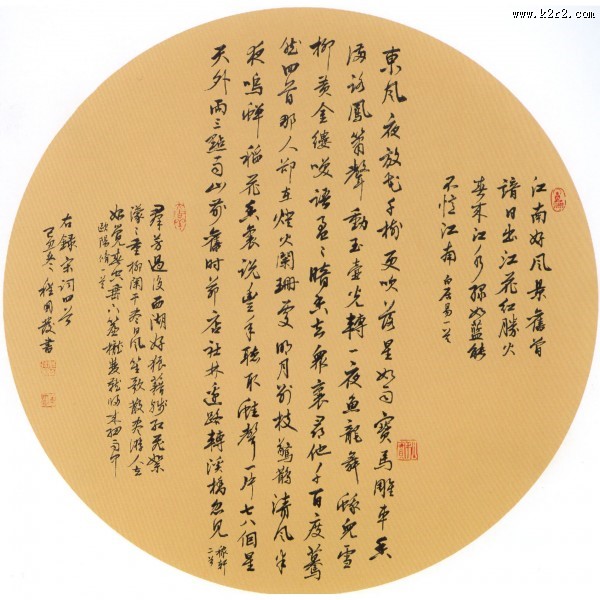 www.k2r2.com
江南好風景舊曾
諳日出江花紅勝火
春來江水綠如藍能
不憶江南 白居易一首
東風夜放花千樹更吹落星如雨寶馬雕車香
滿路鳳簫聲動玉壺光轉一夜魚龍舞蛾兒雪
柳黃金縷笑語盈〻暗香去眾裏尋他千百度驀
然回首那人卻在燈火闌珊處明月別枝驚鵲清風半
夜鳴蟬稻花香裏說豐年聽取蛙聲一片七八個星
天外兩三點雨山前舊時茅店社林邊路轉溪橋忽見 稼軒二首
群芳過後西湖好狼籍殘紅飛絮
濛〻垂柳闌干盡日風笙歌散盡游人去
始覺春空垂下簾櫳雙燕歸來細雨中
歐陽修一首
右錄宋詞四首
己丑冬 程國發書